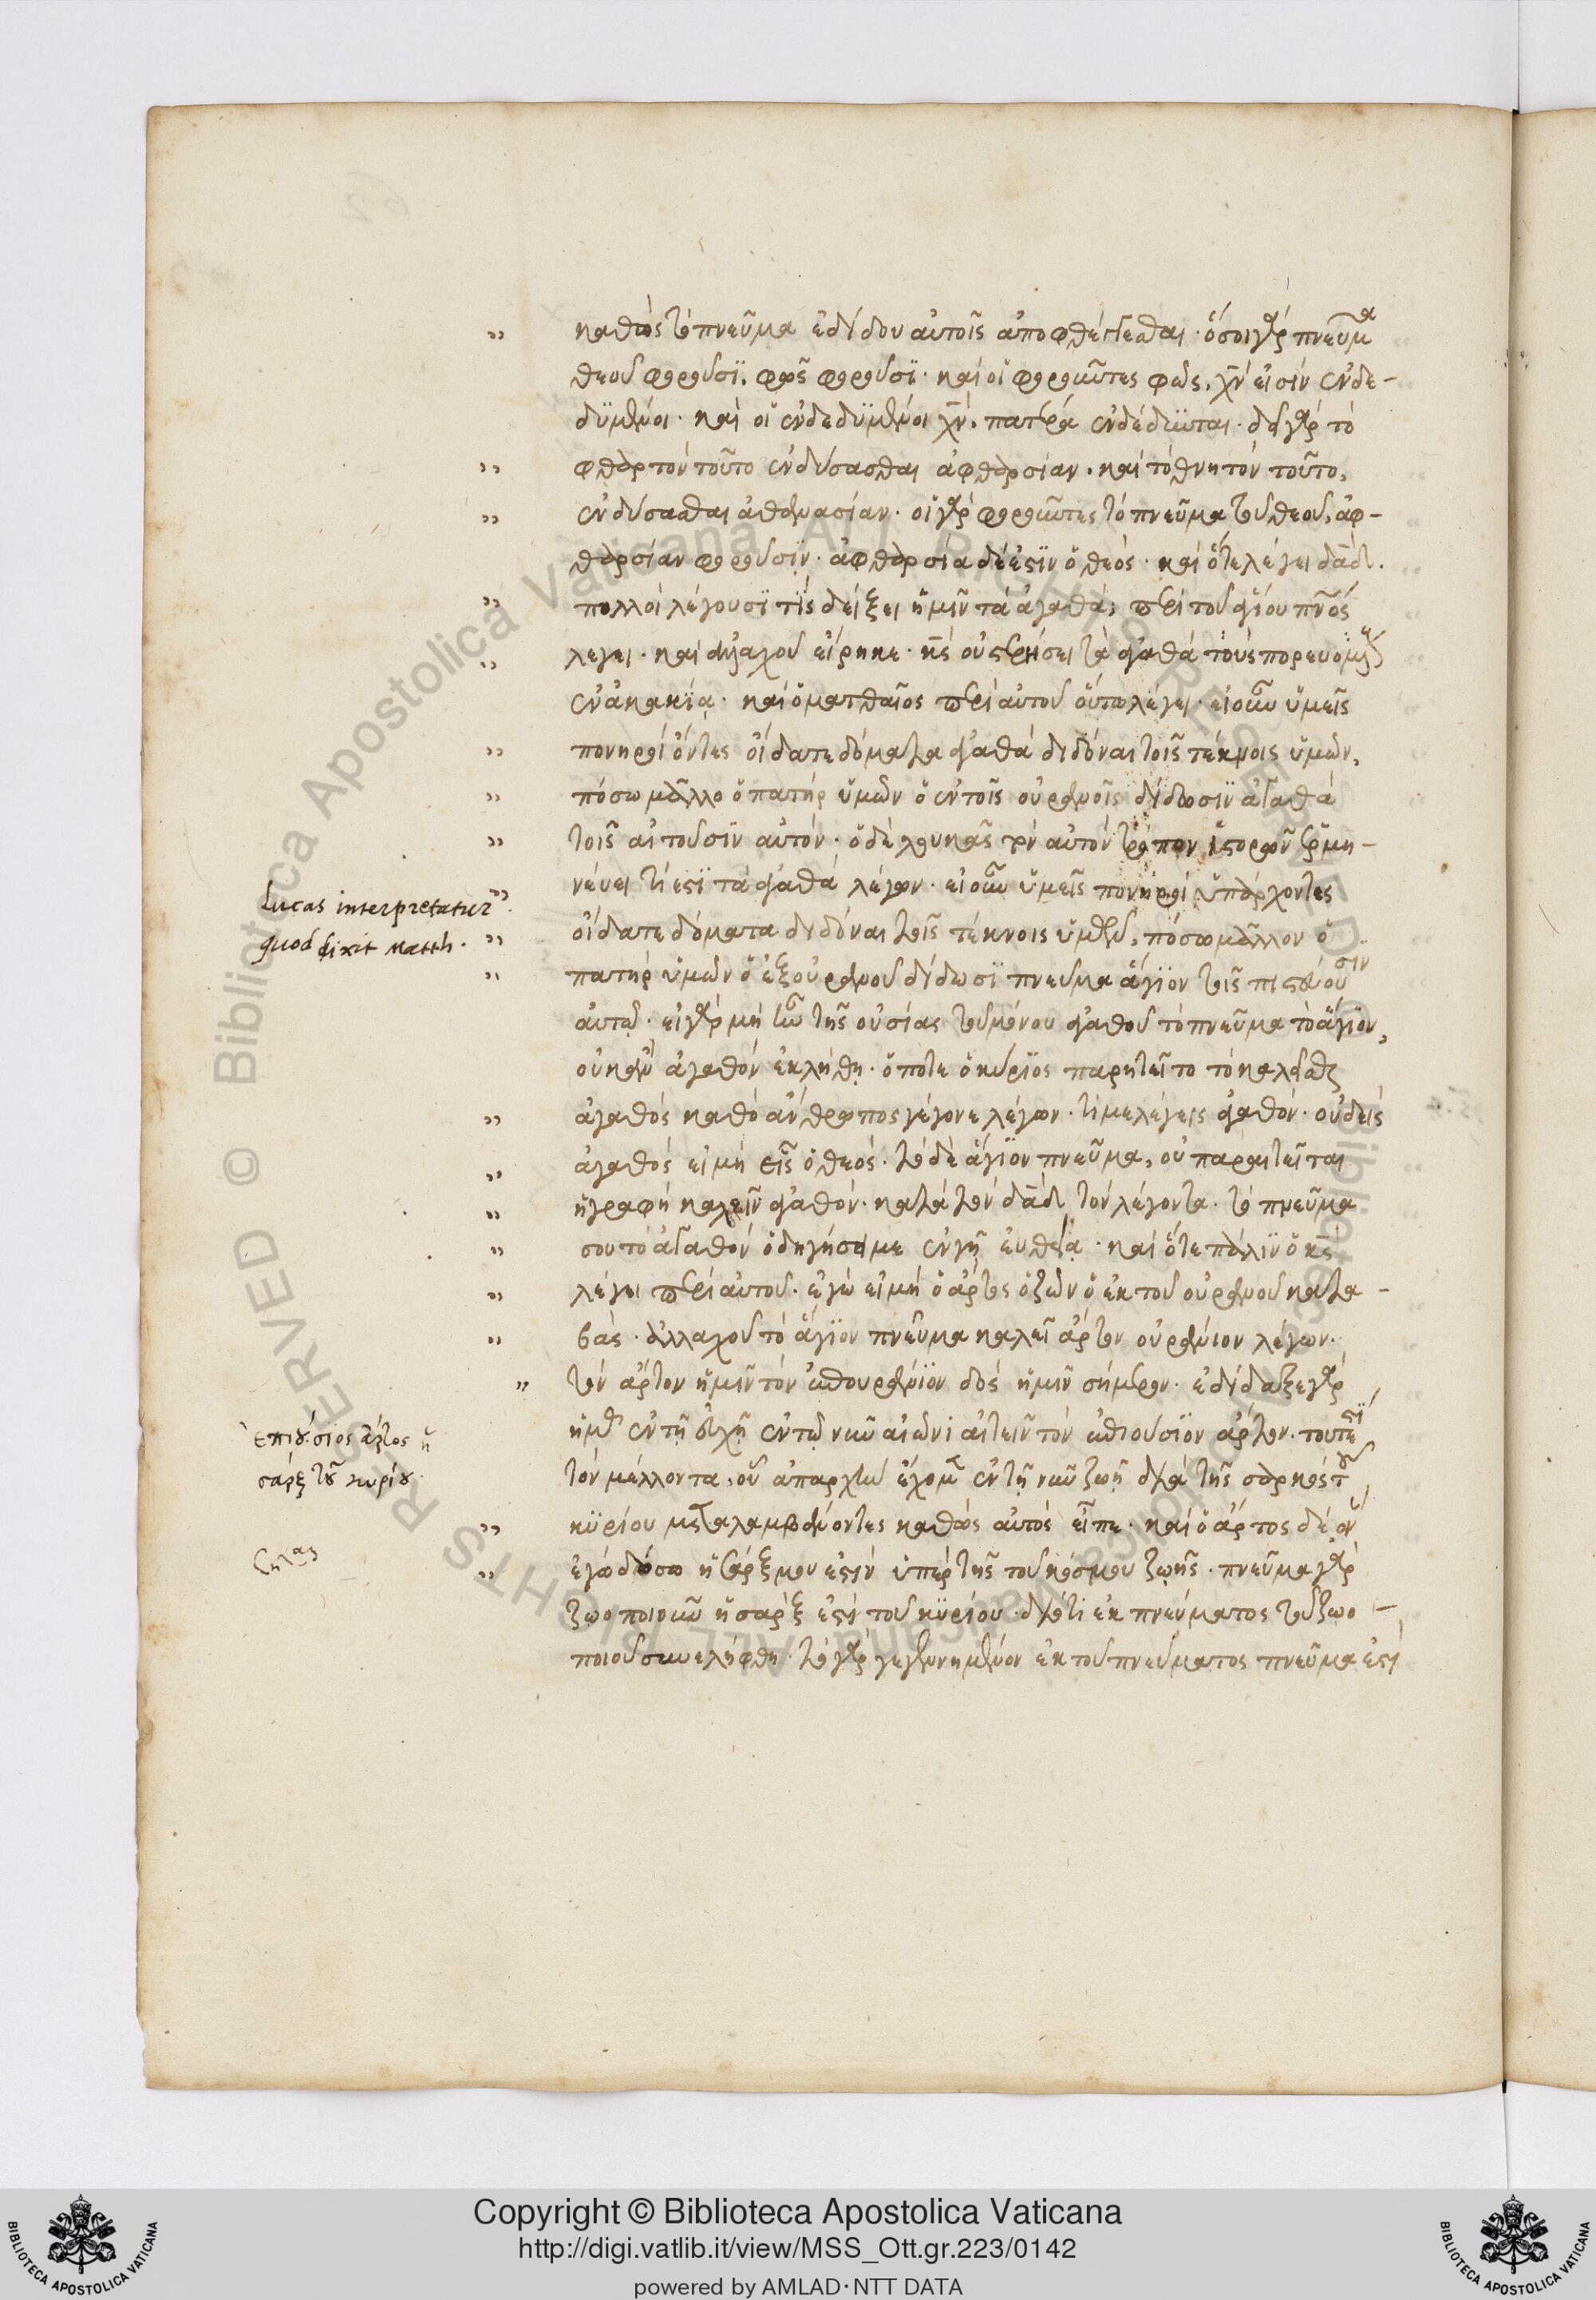 καθὼς τὸ πνεῦμα ἐδίδου αὐτοῖς ἀποφθέγγεσθαι· ὅσοι γὰρ πνεῦμα
θεοῦ φοροῦσϊ, φῶς φοροῦσϊ· καὶ οἱ φοροῦντες φῶς, χν εἰσὶν ἐνδε-
δϋμένοι· καὶ οἱ ἐνδεδϋμένοι χν, πατέρα ἐνδέδυνται· δεῖ γὰρ τὸ
φθαρτὸν τοῦτο ἐνδύσασθαι ἀφθαρσίαν· καὶ τὸ θνητὸν τοῦτο,
ἐνδύσασθαι ἀθανασίαν· οἱ γὰρ φοροῦντες τὸ πνεῦμα τοῦ θεοῦ, ἀφ-
θαρσίαν φοροῦσϊν· ἀφθαρσία δέ ἐστϊν ὁ θεός· καὶ ὅτε λέγει δαδ.
πολλοὶ λέγουσϊ τίς δείξει ἡμῖν τὰ ἀγαθά; περὶ τοῦ ἁγίου πνος
λεγει· καὶ ἀλλαχοῦ εἴρηκε· κς οὐ στερήσει τὰ ἀγαθὰ τοὺς πορευομένους
ἐν ἀκακίᾳ· καὶ ὁ ματθαῖος περὶ αὐτοῦ οὕτω λέγει· εἰ οὖν ὑμεῖς
πονηροὶ ὄντες οἴδατε δόματα ἀγαθὰ διδόναι τοῖς τέκνοις ὑμῶν,
πόσω μᾶλλο ὁ πατὴρ ὑμῶν ὁ ἐν τοῖς οὐρανοῖς δίδωσϊν ἀγαθὰ
τοῖς αἰτοῦσϊν αὐτόν· ὁ δὲ λουκᾶς τὸν αὐτὸν τρόπον ἱστορῶν ἑρμη-
νεύει τί ἐστϊ τὰ ἀγαθὰ λέγων· εἰ οὖν ὑμεῖς πονηροὶ ὑπάρχοντες
οἴδατε δόματα διδόναι τοῖς τέκνοις ὑμῶν, πόσω μᾶλλον ὁ
πατὴρ ὑμῶν ὁ ἐξ οὐρανοῦ δίδωσϊ πνεῦμα ἅγϊον τοῖς πιστεύουσιν
αὐτῷ· εἰ γὰρ μὴ ἦν τῆς οὐσίας τοῦ μόνου ἀγαθοῦ τὸ πνεῦμα τὸ ἅγϊον,
οὐκ ἂν ἀγαθὸν ἐκλήθη· ὁπότε ὁ κύρϊος παρητεῖτο τὸ καλεῖσθαι
ἀγαθὸς καθὸ ἄνθρωπος γέγονε λέγων· τί με λέγεις ἀγαθόν· οὐδεὶς
ἀγαθὸς εἰ μὴ εἷς ὁ θεός· τὸ δὲ ἅγϊον πνεῦμα, οὐ παραιτεῖται
ἡ γραφὴ καλεῖν ἀγαθόν· κατὰ τὸν δαδ τὸν λέγοντα· τὸ πνεῦμα
σου τὸ ἀγαθὸν ὁδηγήσει με ἐν γῇ εὐθείᾳ· καὶ ὅτε πάλϊν ὁ κς
λέγει περὶ αὐτοῦ· ἐγώ εἰμὴ ὁ ἄρτος ὁ ζῶν ὁ ἐκ τοῦ οὐρανοῦ κατα-
βάς· ἀλλαχοῦ τὸ ἅγϊον πνεῦμα καλεῖ ἄρτον οὐράνιον λέγων·
τὸν ἄρτον ἡμῖν τὸν ἐπουράνϊον δὸς ἡμῖν σήμερον· ἐδίδαξε γὰρ
ἡμᾶς ἐν τῇ εὐχῇ ἐν τῷ νῦν αἰῶνι αἰτεῖν τὸν ἐπιούσϊον ἄρτον· τουτέστϊ
τὸν μέλλοντα, οὗ ἀπαρχὴν ἔχομεν ἐν τῇ νῦν ζωῇ διὰ τῆς σαρκὸς τοῦ
κϋρίου μεταλαμβάνοντες καθὼς αὐτὸς εἶπε· καὶ ὁ ἄρτος δὲ ὃν
ἐγὼ δώσω ἡ σάρξ μου ἐστὶν ὑπὲρ τῆς τοῦ κόσμου ζωῆς· πνεῦμα γὰρ
ζωοποιοῦν ἡ σάρξ ἐστι τοῦ κϋρίου· διότι ἐκ πνεύματος τοῦ ζωο-
ποιοῦ συνελήφθη· τὸ γὰρ γεγεννημένον ἐκ τοῦ πνεύματος πνεῦμα ἐστι
Lucas interpretatur
quod dixit Matth.
ἐπιούσϊος ἄρτος ἡ
σάρξ τοῦ κυρίου.
Copyright © Biblioteca Apostolica Vaticana
http://digi.vatlib.it/view/MSS_Ott.gr.223/0142
powered by AMLAD·NTT DATA
BIBLIOTECA APOSTOLICA VATICANA
BIBLIOTECA APOSTOLICA VATICANA